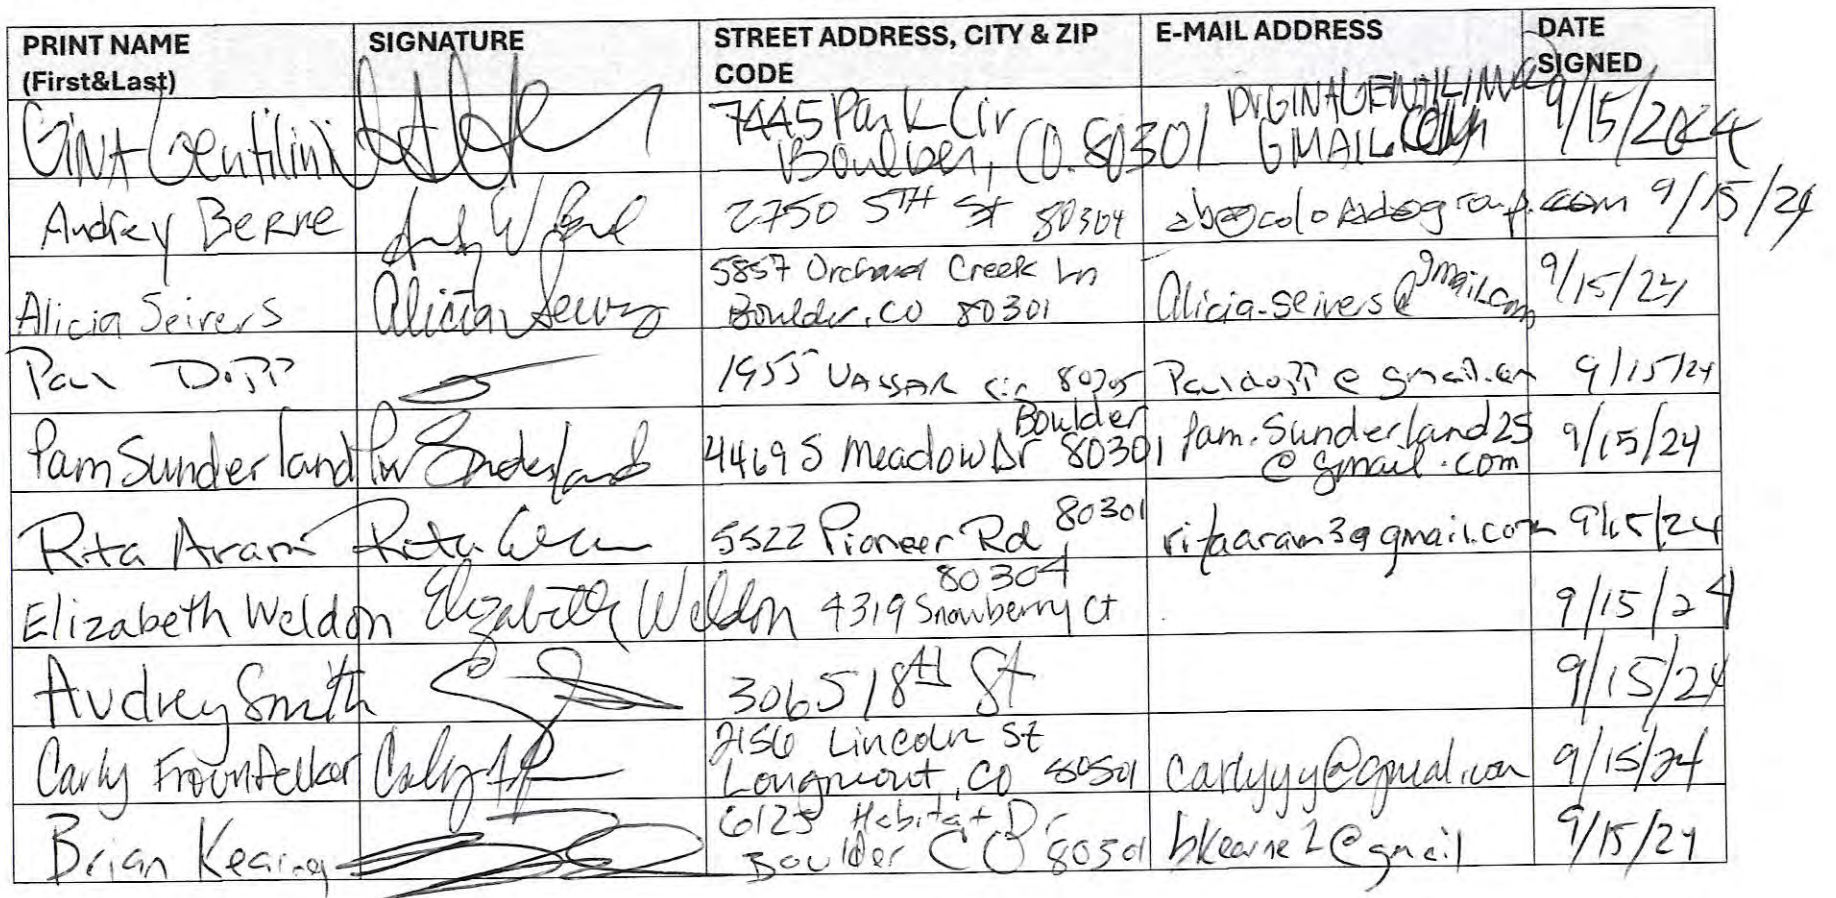 PRINT NAME
(First&Last)
SIGNATURE
STREET ADDRESS, CITY & ZIP
CODE
E-MAIL ADDRESS
DATE
SIGNED
GINA Gentilini
7445 Park Cir
Boulder, CO. 80301
DrGINAGENTILINI@
GMAIL.COM
9/15/2024
Audrey Berne
2750 5TH St 80304
9/15/24
Alicia Seivers
Alicia Seivers
5857 Orchard Creek Ln
Boulder, CO 80301
Alicia.seivers@gmail.com
9/15/24
Paul
1955 VASSAR Cir 80305
9/15/24
Pam Sunderland
Pam Sunderland
4469 S Meadow Dr Boulder 80301
Pam.Sunderland25
@gmail.com
9/15/24
Rita Aram
Rita
5522 Pioneer Rd 80301
ritaaram3@gmail.com
9/15/24
Elizabeth Weldon
Elizabeth Weldon
4319 Snowberry Ct 80304
9/15/24
Audrey Smith
3065 18th St
9/15/24
Carly
2156 Lincoln St
Longmont, CO 80501
carlyyy@gmail.com
9/15/24
Brian
6125 Habitat Dr
Boulder CO 80301
9/15/24